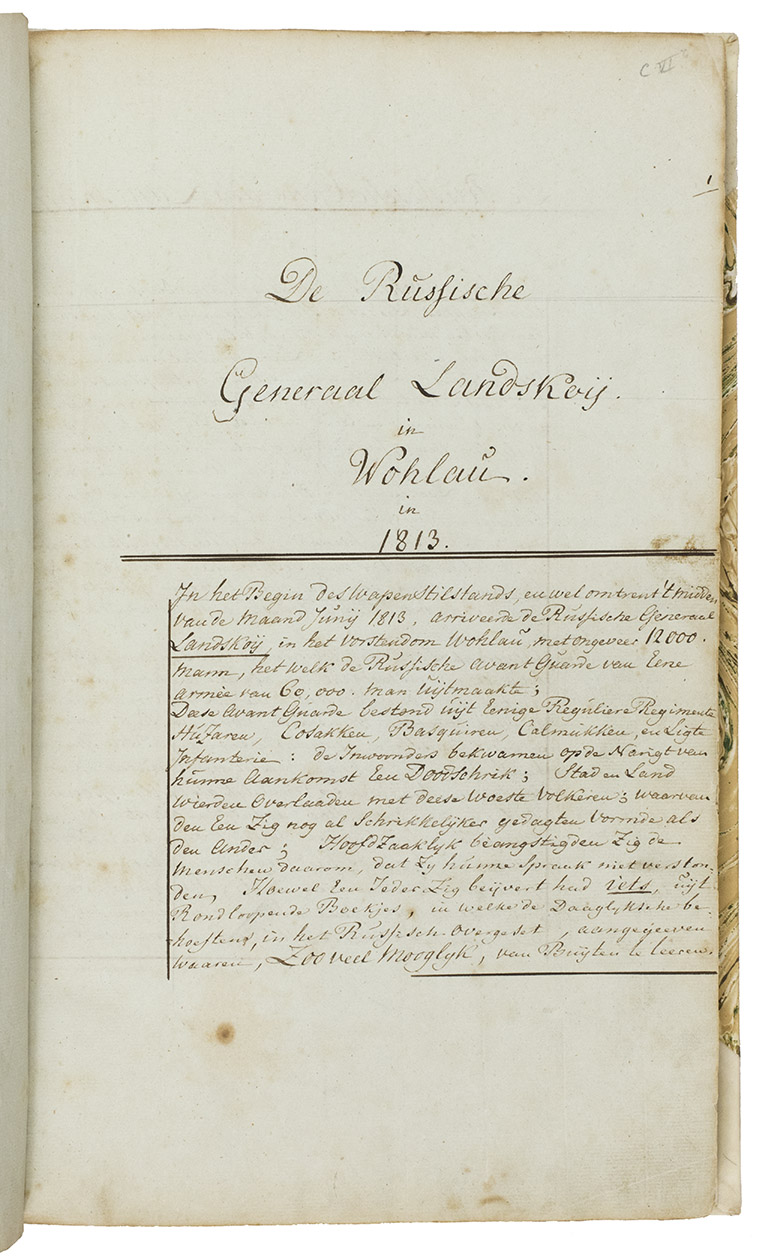 C VI
1
De Russische
Generaal Landskoij.
in
Wohlau.
in
1813.
In het Begin des wapenstilstands, en wel omtrent 't midden
van de Maand Junij 1813, arriveerde de Russische Generaal
Landskoij, in het vorstendom Wohlau, met ongeveer 12000.
mann, het welk de Russische avant Guarde van Eene
armée van 60,000. man uijtmaakte;
Deese avant Guarde bestond uijt Eenige Reguliere Regimente
Husaren, Cosakken, Basquiren, Calmukken, en Ligte
Infanterie: de Inwoonders bekwamen op de Narigt van
hunne Aankomst Een Doodschrik; Stad en Land
wierden Overlaaden met deese woeste volkeren; waarvan
den Een Zig nog al Schrikkelijker gedagten vormde als
den Ander; Hoofdzaaklyk beangstigden Zig de
Menschen daarom, dat Zy hunne Spraak niet verston-
den, Hoewel Een Ieder Zig beijvert had iets, uijt
Rondloopende Boekjes, in welke de Daaglyksche be-
hoeftens, in het Russisch overgeset, aangegeeven
waaren, Zoo veel Mooglyk, van Buijten te leeren.